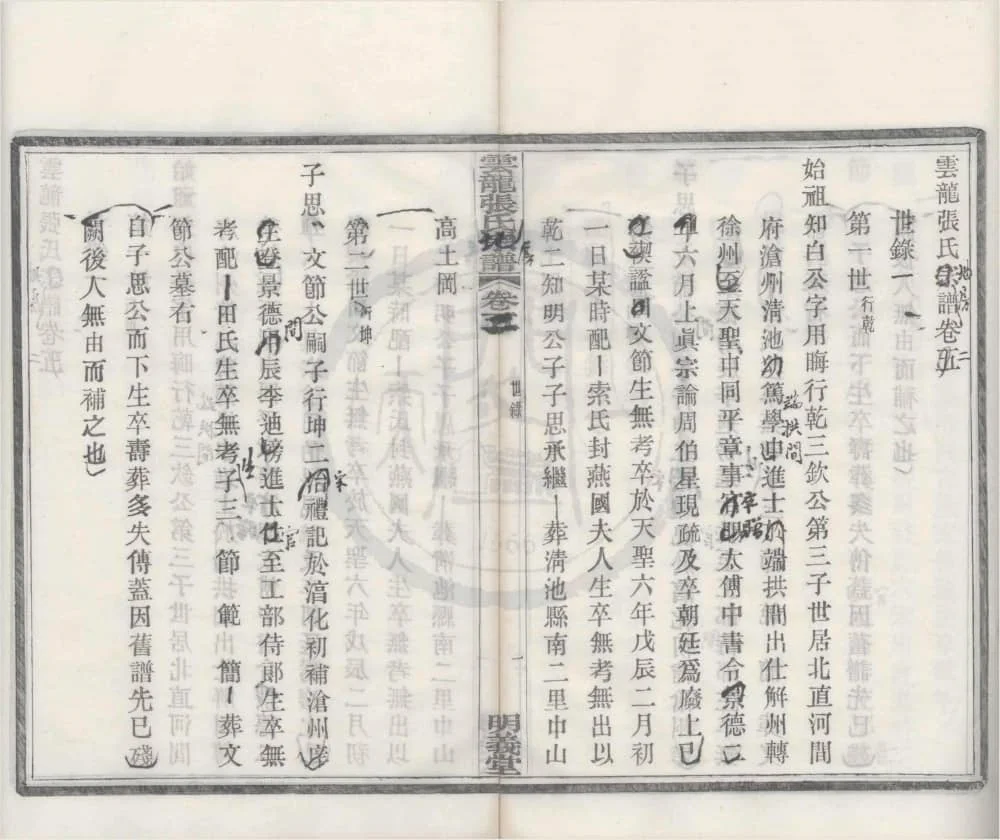 雲龍張氏宗譜卷五
世錄一
第一世行乾
始祖知白公字用晦行乾三欽公第三子世居北直河間
府滄州清池幼篤學中進士於端拱間出仕解州轉
徐州至天聖中同平章事卒賜太傅中書令景德二
年六月上眞宗論周伯星現疏及卒朝廷爲廢上巳
之禊謚曰文節生無考卒於天聖六年戊辰二月初
一日某時配一索氏封燕國夫人生卒無考無出以
乾二知明公子子思承繼一葬淸池縣南二里中山
雲龍張氏譜
卷二
世錄
一
明義堂
高土岡
第二世行坤
子思、文節公嗣子行坤二治禮記於淳化初補滄州庠
生登景德間甲辰李迪榜進士仕至工部侍郎生卒無
考配一田氏生卒無考生子三 節 範 簡一葬文
節公墓右
自子思公而下生卒壽葬多失傳蓋因舊譜先已殘
闕後人無由而補之也